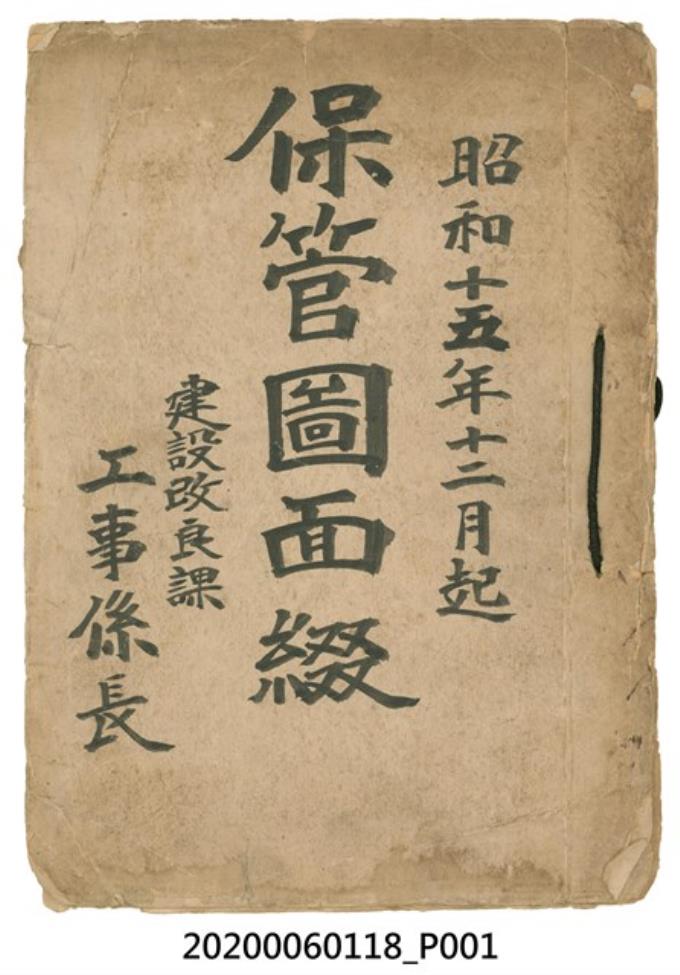 昭和十五年十二月起
保管圖面綴
建設改良課
工事係長
20200060118_P001